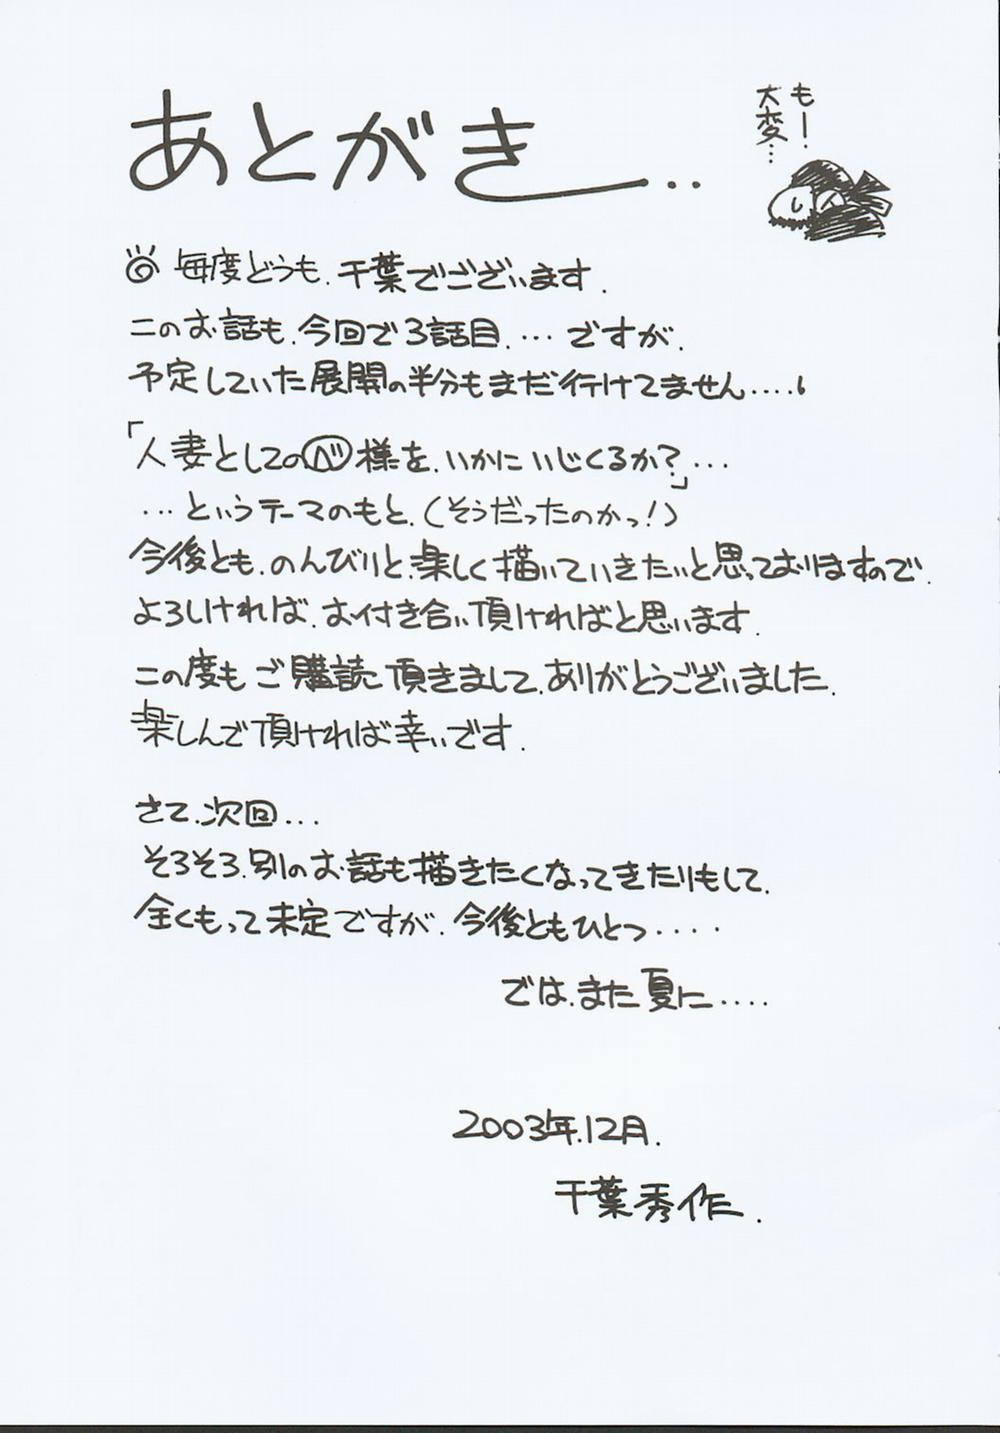 あとがき...
もー
大変...
毎度どうも、千葉でございます.
このお話も、今回で3話目、...ですが、
予定していた展開の半分もまだ行けてません....
「人妻としてのベ様を、いかにいじくるか?」...
...というテーマのもと、(そうだったのかっ!)
今後とも、のんびりと、楽しく描いていきたいと思っておりますので、
よろしければ、お付き合い頂ければと思います.
この度もご購読頂きまして、ありがとうございました.
楽しんで頂ければ幸いです.
さて、次回...
そろそろ、別のお話も描きたくなってきたりもして、
全くもって未定ですが、今後ともひとつ....
では、また夏に....
2003年.12月.
千葉秀作.